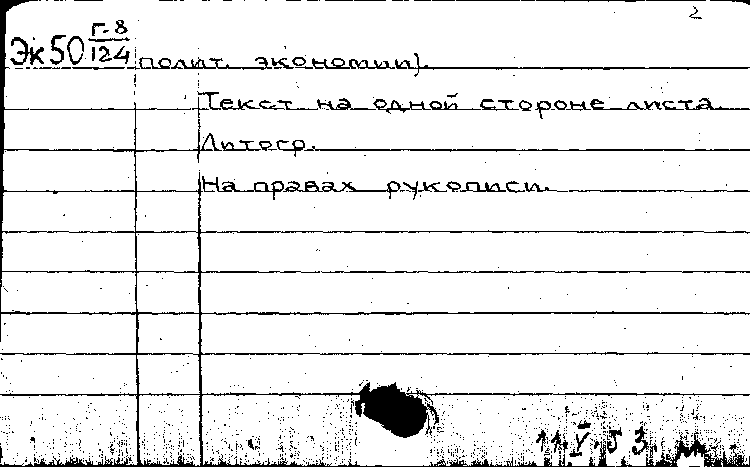 2
Эк50 Г-8/124 полит. экономии).
Текст на одной стороне листа.
Литогр.
На правах рукописи.
11.V.53